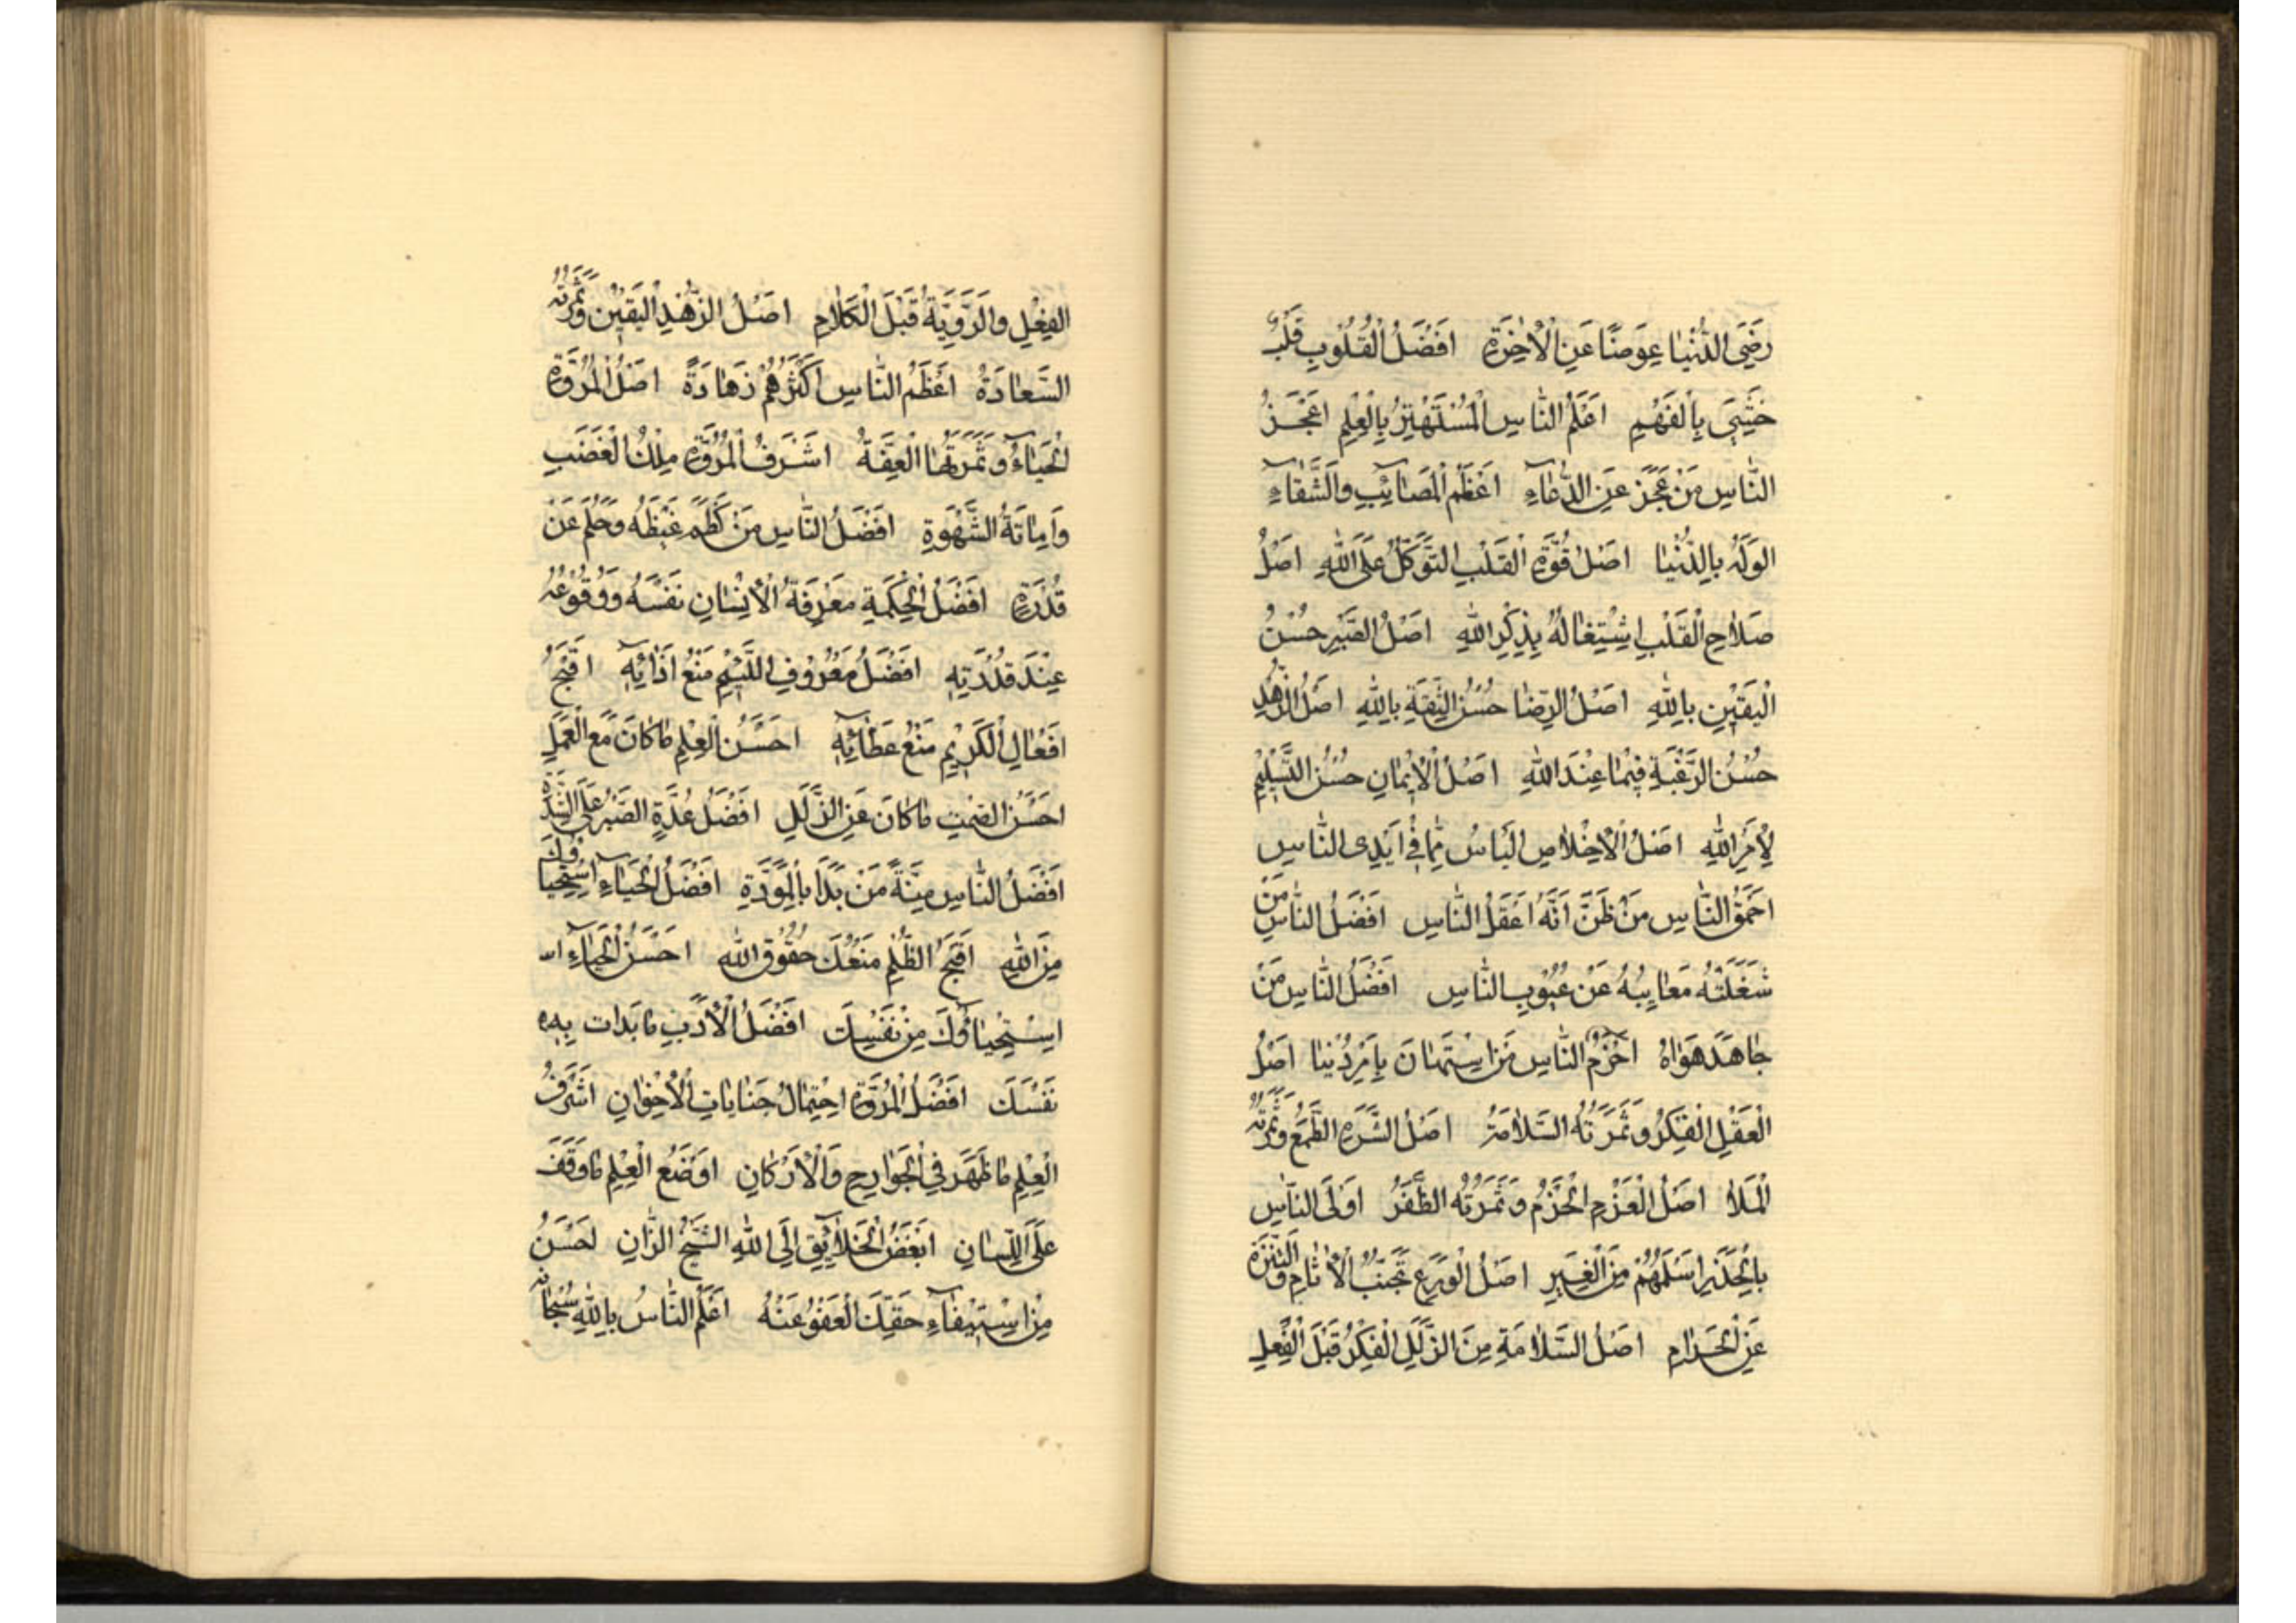 رَضِيَ الدُّنْيَا عِوَضًا عَنِ الْاٰخِرَةِ اَفْضَلُ الْقُلُوبِ قَلْبٌ
حُشِيَ بِالْفَهْمِ اَعْلَمُ النَّاسِ الْمُسْتَهْتَرُ بِالْعِلْمِ اَعْجَزُ
النَّاسِ مَنْ عَجَزَ عَنِ الدُّعَاءِ اَعْظَمُ الْمَصَايِبِ وَالشَّقَاءِ
الْوَلَهُ بِالدُّنْيَا اَصْلُ قُوَّةِ الْقَلْبِ التَّوَكُّلُ عَلَى اللهِ اَصْلُ
صَلَاحِ الْقَلْبِ اِشْتِغَالُهُ بِذِكْرِ اللهِ اَصْلُ الصَّبْرِ حُسْنُ
الْيَقِيْنِ بِاللهِ اَصْلُ الرِّضَا حُسْنُ الثِّقَةِ بِاللهِ اَصْلُ الزُّهْدِ
حُسْنُ الرَّغْبَةِ فِيمَا عِنْدَ اللهِ اَصْلُ الْاِيمَانِ حُسْنُ التَّسْلِيْمِ
لِاَمْرِ اللهِ اَصْلُ الْاِخْلَاصِ الْيَاسُ مِمَّا فِي اَيْدِى النَّاسِ
اَحْمَقُ النَّاسِ مَنْ ظَنَّ اَنَّهُ اَعْقَلُ النَّاسِ اَفْضَلُ النَّاسِ مَنْ
شَغَلَتْهُ مَعَايِبُهُ عَنْ عُيُوبِ النَّاسِ اَفْضَلُ النَّاسِ مَنْ
جَاهَدَ هَوَاهُ اَحْزَمُ النَّاسِ مَنِ اسْتَهَانَ بِاَمْرِ دُنْيَا اَصْلُ
الْعَقْلِ الْفِكْرُ وَثَمَرَتُهُ السَّلَامَةُ اَصْلُ الشَّرَهِ الطَّمَعُ وَثَمَرَتُهُ
الْمَلَا اَصْلُ الْعَزْمِ الْحَزْمُ وَثَمَرَتُهُ الظَّفَرُ اَوْلَى النَّاسِ
بِالْحَذَرِ اَسْلَمُهُمْ مِنَ الْغِيَرِ اَصْلُ الْوَرَعِ تَجَنُّبُ الْاٰثَامِ وَالتَّنَزُّهُ
عَنِ الْحَرَامِ اَصْلُ السَّلَامَةِ مِنَ الزَّلَلِ الْفِكْرُ قَبْلَ الْفِعْلِ
الْفِعْلِ وَالرَّوِيَّةُ قَبْلَ الْكَلَامِ اَصْلُ الزُّهْدِ الْيَقِيْنُ وَثَمَرَتُهُ
السَّعَادَةُ اَعْظَمُ النَّاسِ اَكْثَرُهُمْ زَهَادَةً اَصْلُ الْمُرُوَّةِ
الْحَيَاءُ وَثَمَرَتُهَا الْعِفَّةُ اَشْرَفُ الْمُرُوَّةِ مِلْكُ الْغَضَبِ
وَاِمَاتَةُ الشَّهْوَةِ اَفْضَلُ النَّاسِ مَنْ كَظَمَ غَيْظَهُ وَحَلُمَ عَنْ
قُدْرَةٍ اَفْضَلُ الْحِكْمَةِ مَعْرِفَةُ الْاِنْسَانِ نَفْسَهُ وَوُقُوعُهُ
عِنْدَ قُدْرَتِهِ اَفْضَلُ مَعْرُوفِ اللَّئِيْمِ مَنْعُ اَذَائِهِ اَقْبَحُ
اَفْعَالِ الْكَرِيْمِ مَنْعُ عَطَائِهِ اَحْسَنُ الْعِلْمِ مَا كَانَ مَعَ الْعَمَلِ
اَحْسَنُ الصَّمْتِ مَا كَانَ عَنِ الزَّلَلِ اَفْضَلُ عُدَّةٍ الصَّبْرُ عَلَى الشِّدَّةِ
اَفْضَلُ النَّاسِ مِنَّةً مَنْ بَدَاَ بِالْمَوَدَّةِ اَفْضَلُ الْحَيَاءِ اسْتِحْيَاؤُكَ
مِنَ اللهِ اَقْبَحُ الظُّلْمِ مَنْعُكَ حُقُوقَ اللهِ اَحْسَنُ الْحَيَاءِ اس
اِسْتِحْيَاؤُكَ مِنْ نَفْسِكَ اَفْضَلُ الْاَدَبِ مَا بَدَات بِهِ
نَفْسَكَ اَفْضَلُ الْمُرُوَّةِ اِحْتِمَالُ جِنَايَاتِ الْاِخْوَانِ اَشْرَفُ
الْعِلْمِ مَا ظَهَرَ فِي الْجَوَارِحِ وَالْاَرْكَانِ اَوْضَعُ الْعِلْمِ مَا وَقَفَ
عَلَى اللِّسَانِ اَبْغَضُ الْخَلَايِقِ اِلَى اللهِ الشَّيْخُ الزَّانِ اَحْسَنُ
مِنِ اسْتِيْفَاءِ حَقِّكَ الْعَفْوُ عَنْهُ اَعْلَمُ النَّاسُ بِاللهِ سُبْحَانَهُ